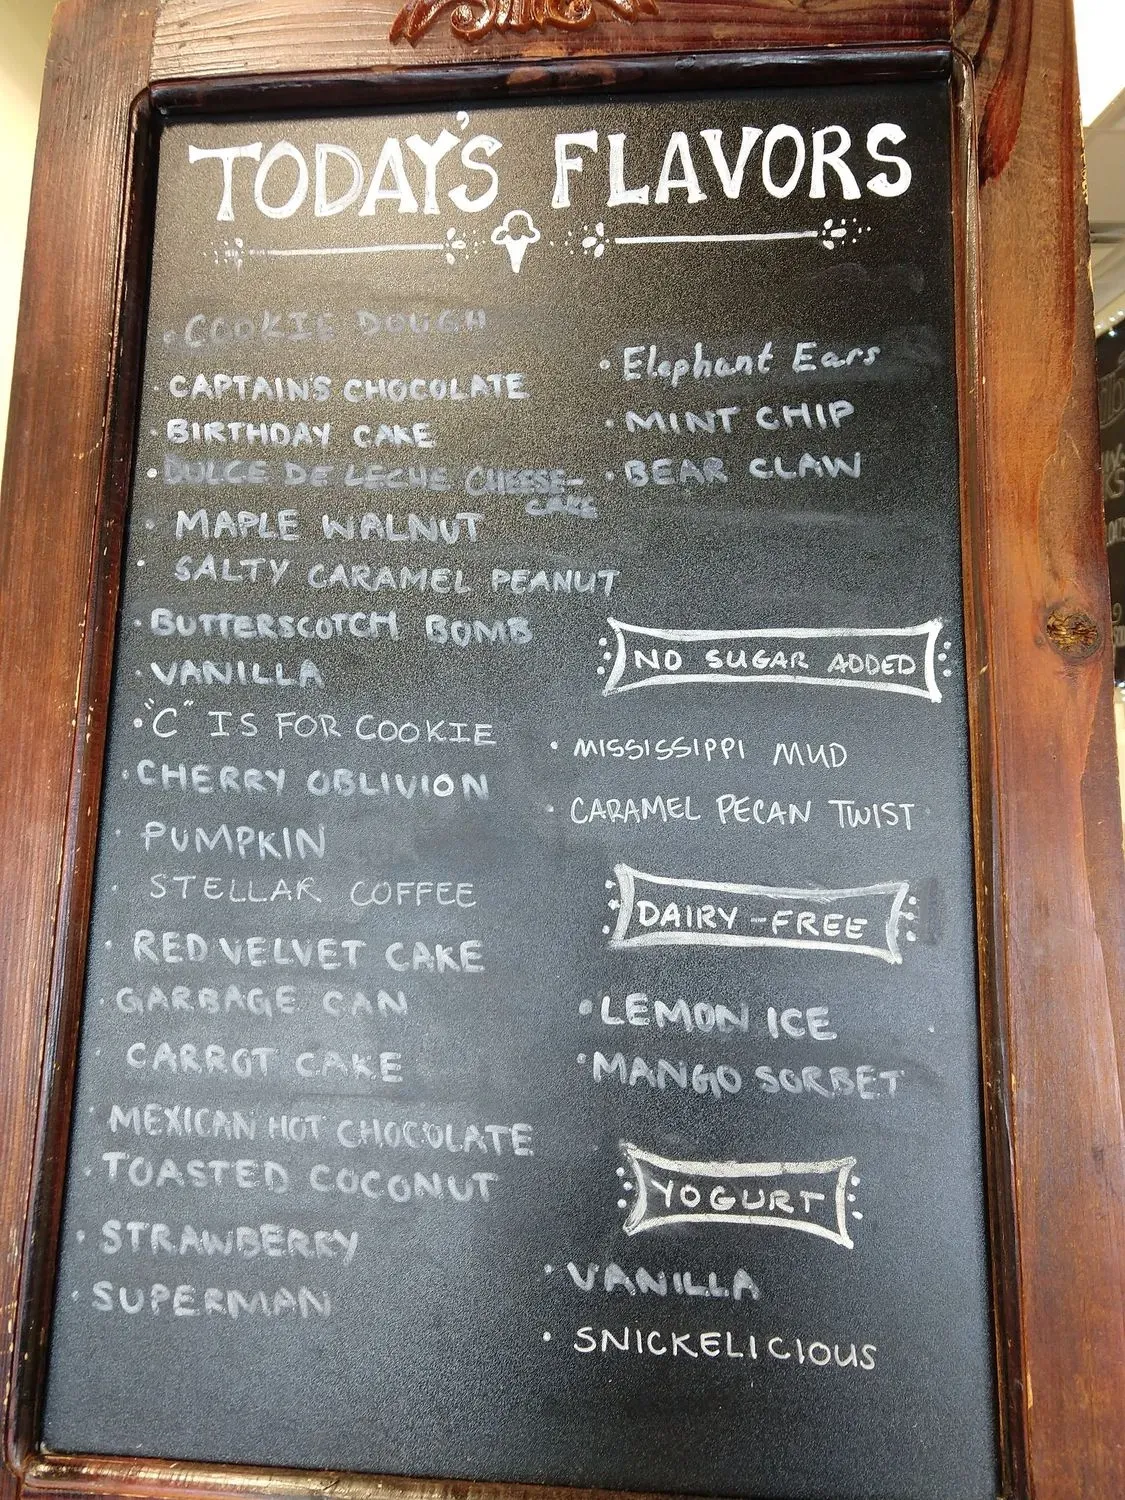 TODAY'S FLAVORS
COOKIE DOUGH
CAPTAIN'S CHOCOLATE
BIRTHDAY CAKE
DULCE DE LECHE CHEESE-
CAKE
MAPLE WALNUT
SALTY CARAMEL PEANUT
BUTTERSCOTCH BOMB
VANILLA
"C" IS FOR COOKIE
CHERRY OBLIVION
PUMPKIN
STELLAR COFFEE
RED VELVET CAKE
GARBAGE CAN
CARROT CAKE
MEXICAN HOT CHOCOLATE
TOASTED COCONUT
STRAWBERRY
SUPERMAN
Elephant Ears
MINT CHIP
BEAR CLAW
NO SUGAR ADDED
MISSISSIPPI MUD
CARAMEL PECAN TWIST
DAIRY-FREE
LEMON ICE
MANGO SORBET
YOGURT
VANILLA
SNICKELICIOUS